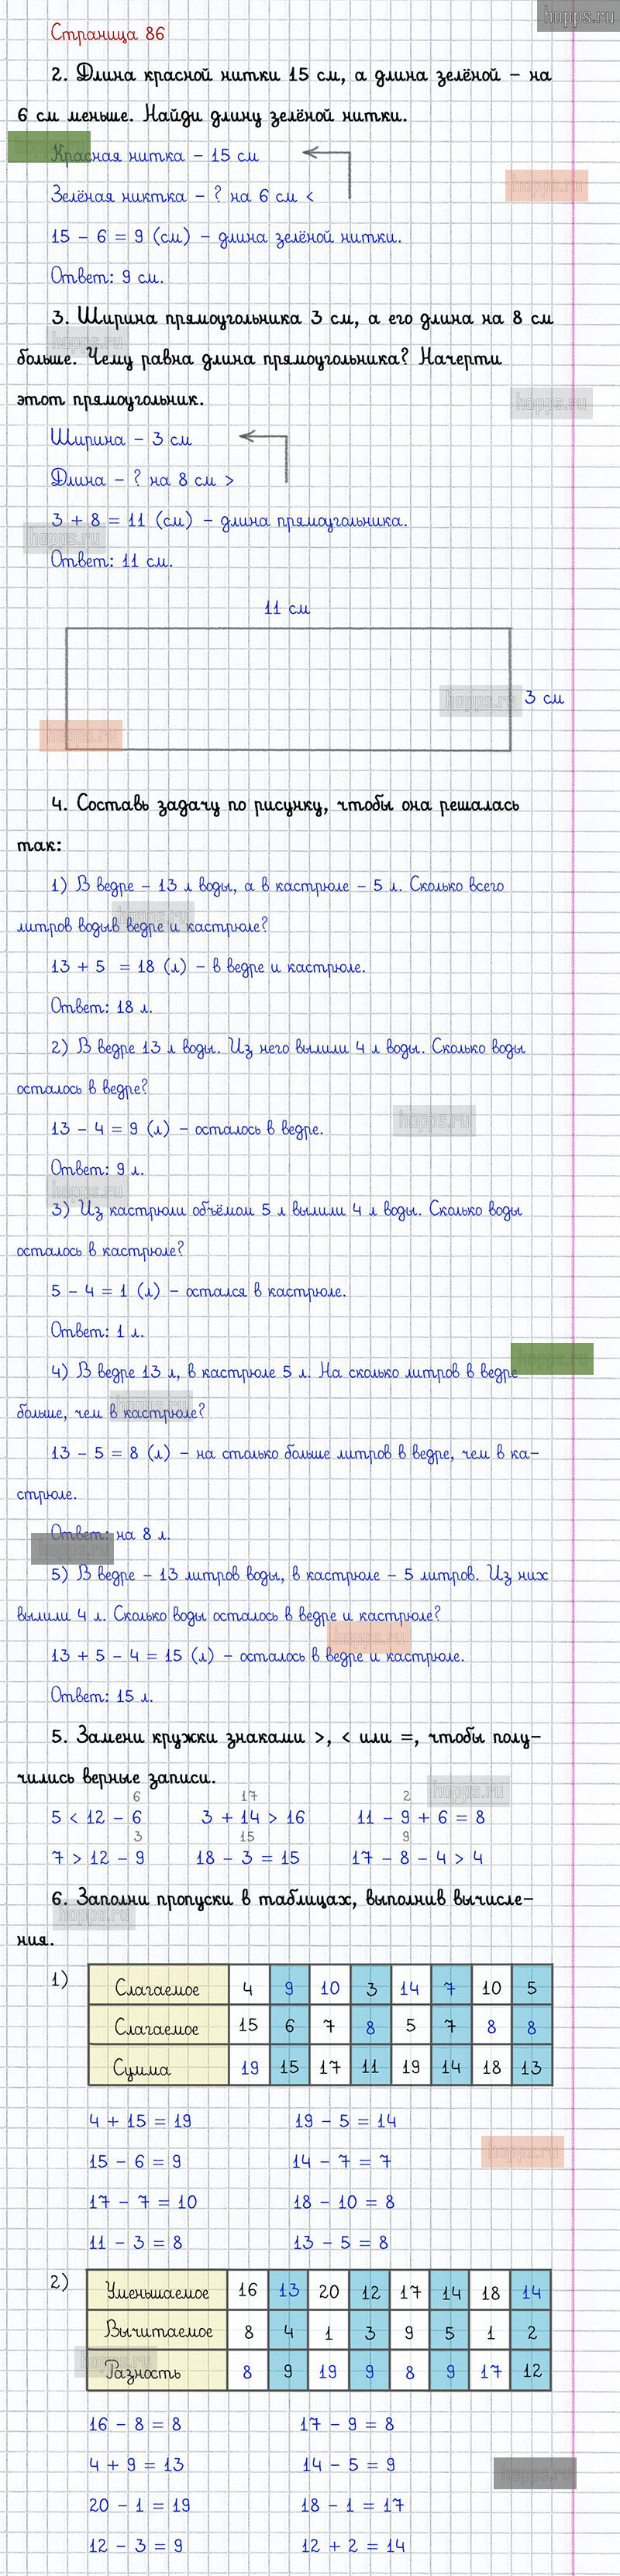 hopps.ru
Страница 86
2. Длина красной нитки 15 см, а длина зелёной – на
6 см меньше. Найди длину зелёной нитки.
Красная нитка – 15 см
Зелёная никтка – ? на 6 см <
hopps.ru
15 – 6 = 9 (см) – длина зелёной нитки.
Ответ: 9 см.
3. Ширина прямоугольника 3 см, а его длина на 8 см
hopps.ru
больше. Чему равна длина прямоугольника? Начерти
этот прямоугольник.
hopps.ru
Ширина – 3 см
Длина – ? на 8 см >
3 + 8 = 11 (см) – длина прямоугольника.
hopps.ru
Ответ: 11 см.
11 см
hopps.ru
3 см
hopps.ru
4. Составь задачу по рисунку, чтобы она решалась
так:
1) В ведре – 13 л воды, а в кастрюле – 5 л. Сколько всего
hopps.ru
литров водыв ведре и кастрюле?
13 + 5 = 18 (л) – в ведре и кастрюле.
Ответ: 18 л.
2) В ведре 13 л воды. Из него вылили 4 л воды. Сколько воды
осталось в ведре?
hopps.ru
13 – 4 = 9 (л) – осталось в ведре.
Ответ: 9 л.
hopps.ru
3) Из кастрюли объёмом 5 л вылили 4 л воды. Сколько воды
осталось в кастрюле?
5 – 4 = 1 (л) – остался в кастрюле.
Ответ: 1 л.
hopps.ru
4) В ведре 13 л, в кастрюле 5 л. На сколько литров в ведре
hopps.ru
больше, чем в кастрюле?
13 – 5 = 8 (л) – на столько больше литров в ведре, чем в ка–
стрюле.
Ответ: на 8 л.
hopps.ru
5) В ведре – 13 литров воды, в кастрюле – 5 литров. Из них
вылили 4 л. Сколько воды осталось в ведре и кастрюле?
hopps.ru
13 + 5 – 4 = 15 (л) – осталось в ведре и кастрюле.
Ответ: 15 л.
5. Замени кружки знаками >, < или =, чтобы полу–
чились верные записи.
hopps.ru
6 17 2
5 < 12 – 6 3 + 14 > 16 11 – 9 + 6 = 8
3 15 9
7 > 12 – 9 18 – 3 = 15 17 – 8 – 4 > 4
6. Заполни пропуски в таблицах, выполнив вычисле–
hopps.ru
ния.
1) Слагаемое 4 9 10 3 14 7 10 5
Слагаемое 15 6 7 8 5 7 8 8
Сумма 19 15 17 11 19 14 18 13
4 + 15 = 19 19 – 5 = 14
15 – 6 = 9 14 – 7 = 7
hopps.ru
17 – 7 = 10 18 – 10 = 8
11 – 3 = 8 13 – 5 = 8
2) Уменьшаемое 16 13 20 12 17 14 18 14
Вычитаемое 8 4 1 3 9 5 1 2
hopps.ru
Разность 8 9 19 9 8 9 17 12
16 – 8 = 8 17 – 9 = 8
4 + 9 = 13 14 – 5 = 9
hopps.ru
20 – 1 = 19 18 – 1 = 17
12 – 3 = 9 12 + 2 = 14